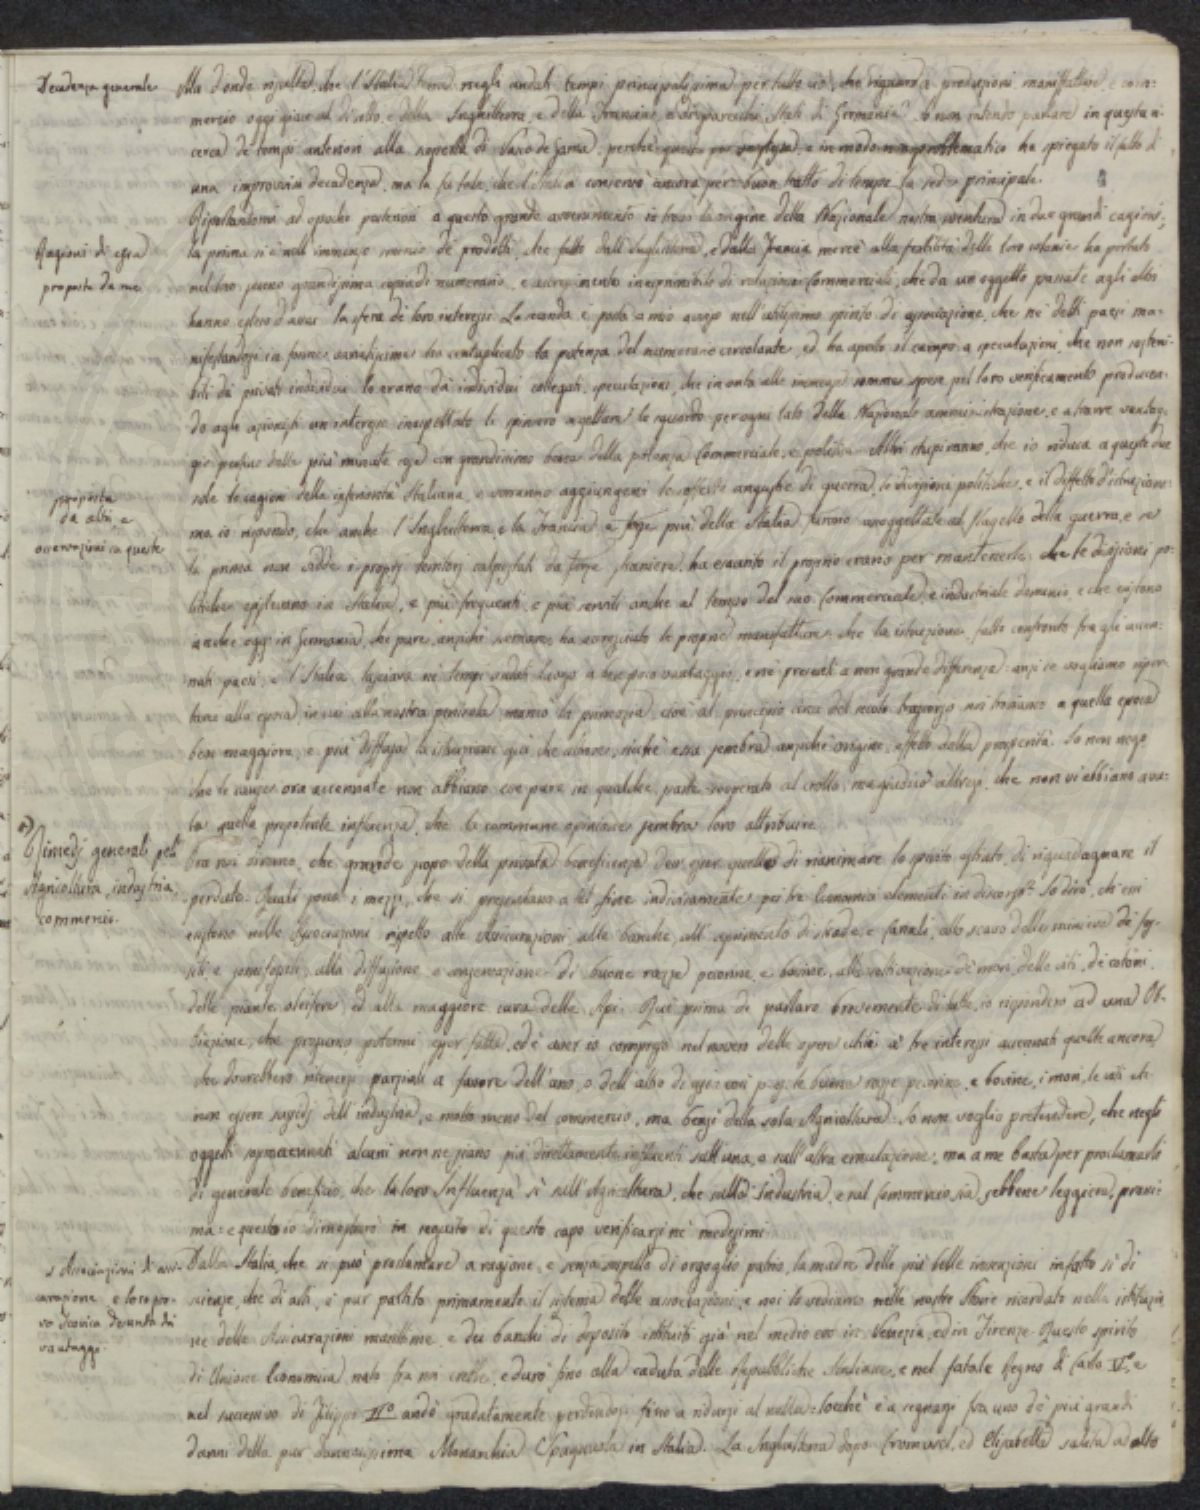 Decadenza generale
Ma donde risulta, che l'Italia fu negli andati tempi principalissima per tutto ciò, che riguarda produzioni manifatture e com-
mercio oggi giace al di sotto e della Inghilterra, e della Francia, e di parecchi Stati di Germania? Io non intendo parlare in questa ri-
cerca de' tempi anteriori alla scoperta di Vasco de Gama, perchè questa per se stessa, e in modo non problematico ha spiegato il fatto di
una improvvisa decadenza, ma la fu tale, che l'Italia conservò ancora per buon tratto di tempo la sede principale.
Ragioni di essa
proposte da me
Riportandomi ad epoche posteriori a questo grande avvenimento io trovo la origine della Nazionale nostra sventura in due grandi cagioni;
la prima si è nell'immenso smercio de' prodotti che fatto dall'Inghilterra, e dalla Francia mercè alla fertilità delle loro colonie ha portato
nel loro seno grandissima copia di numerario, e accrescimento inesprimibile di relazioni Commerciali, che da un oggetto passate agli altri
hanno esteso d'assai la sfera de' loro interessi. La seconda è posta a mio avviso nell'utilissimo spirito di associazione, che ne' detti paesi ma-
nifestandosi in forme svariatissime ha centuplicato la potenza del numerario circolante, ed ha aperto il campo a speculazioni, che non sosteni-
bili da privati individui lo erano da individui collegati, speculazioni, che in onta alle immense somme spese pel loro verificamento producen-
do agli azionisti un interesse inaspettato li spinsero a gettare lo sguardo per ogni lato della Nazionale amministrazione, e a trarre vantag-
gio perfino dalle più minute cose con grandissimo bene della potenza Commerciale, e politica. Altri stupiranno, che io riduca a queste due
proposte
da altri, e
osservazioni su queste
sole le cagioni della inferiorità Italiana, e vorranno aggiungervi le sofferte angustie di guerra, le divisioni politiche, e il difetto d'istruzione:
ma io rispondo, che anche l'Inghilterra e la Francia e forse più della Italia furono assoggettate al flagello della guerra, e se
la prima non vidde i proprj territorj calpestati da forze straniere, ha esaurito il proprio erario per mantenerle: che le divisioni po-
litiche esistevano in Italia, e più frequenti, e più serviti anche al tempo del suo Commerciale, e industriale dominio, e che esistono
anche oggi in Germania, che pure anzichè scemare ha accresciuto le proprie manifatture: che la istruzione, fatto confronto fra gli accen-
nati paesi, e l'Italia lasciava ne' tempi andati luogo a ben poco vantaggio, e ne' presenti a non grande differenza: anzi se vogliamo ripor-
tarci alla epoca in cui alla nostra penisola mancò la primazia, cioè al principio circa del secolo trascorso noi troviamo a quella epoca
ben maggiore, e più diffusa la istruzione quì che altrove, sicchè essa sembra anzichè origine, effetto della prosperità. Io non nego
che le cause ora accennate non abbiano esse pure in qualche parte cooperato al crollo, ma giudico altresì, che non vi abbiano avu-
to quella prepotente influenza, che la commune opinione sembra loro attribuire
Rimedj generali pell'
Agricoltura, industria,
commercio.
Ora noi diremo, che grande scopo della privata beneficenza dev'esser quello di rianimare lo spirito estinto, di riguadagnare il
perduto. Quali sono i mezzi, che si presentano a tal fine indicatamente pei tre Economici elementi in discorso? Io dirò, ch'essi
esistono nelle Associazioni rispetto alle Assicurazioni, alle banche, all'aprimento di strade, e Canali, allo scavo delle miniere de' fos-
sili e semifossili, alla diffusione e conservazione di buone razze pecorine, e bovine, alla coltivazione de' mori, delle viti, de' cotoni,
delle piante oleifere, ed alla maggiore cura delle Api. Quì prima di parlare brevemente di tutte, io risponderò ad una Ob-
biezione, che presumo potermi esser fatta, ed è aver io compreso nel novero delle opere utili a' tre interessi accennati quelle ancora
che dovrebbero ritenersi parziali a favore dell'uno, o dell'altro di essi: così p. es. le buone razze pecorine, e bovine, i mori, le viti ec.
non essere sussidj dell'industria, e molto meno del commercio, ma bensì della sola Agricoltura. Io non voglio pretendere, che negli
oggetti sopraccennati alcuni non ne siano più direttamente influenti sull'una, o sull'altra emulazione, ma a me basta per proclamarli
di generale beneficio, che la loro Influenza sì sull'Agricoltura, che sulla Industria, e sul Commercio sia, sebbene leggiera, prossi-
ma: e questo io dimostrerò in seguito di questo capo verificarsi ne' medesimi
Associazioni di assi-
curazione e loro pro-
va storica de' molti di
vantaggi.
Dalla Italia, che si può proclamare a ragione, e senza sospetto di orgoglio patrio, la madre delle più belle invenzioni in fatto sì di
scienze, che di arti, è pur partito primamente il sistema delle associazioni, e noi lo vediamo nelle nostre Storie ricordato nella istituzio-
ne delle Assicurazioni marittime e dei banchi di deposito istituiti già nel medio evo in Venezia, ed in Firenze. Questo spirito
di Unione Economica, nato fra noi crebbe, e durò fino alla caduta delle Repubbliche Italiane, e nel fatale Regno di Carlo V.º e
nel successivo di Filippo II.º andò gradatamente perdendosi fino a ridursi al nulla: locchè è a segnarsi fra uno de' più grandi
danni della pur dannosissima Monarchia Spagnuola in Italia. La Inghilterra dopo Cromwel, ed Elisabetta salita ad alto